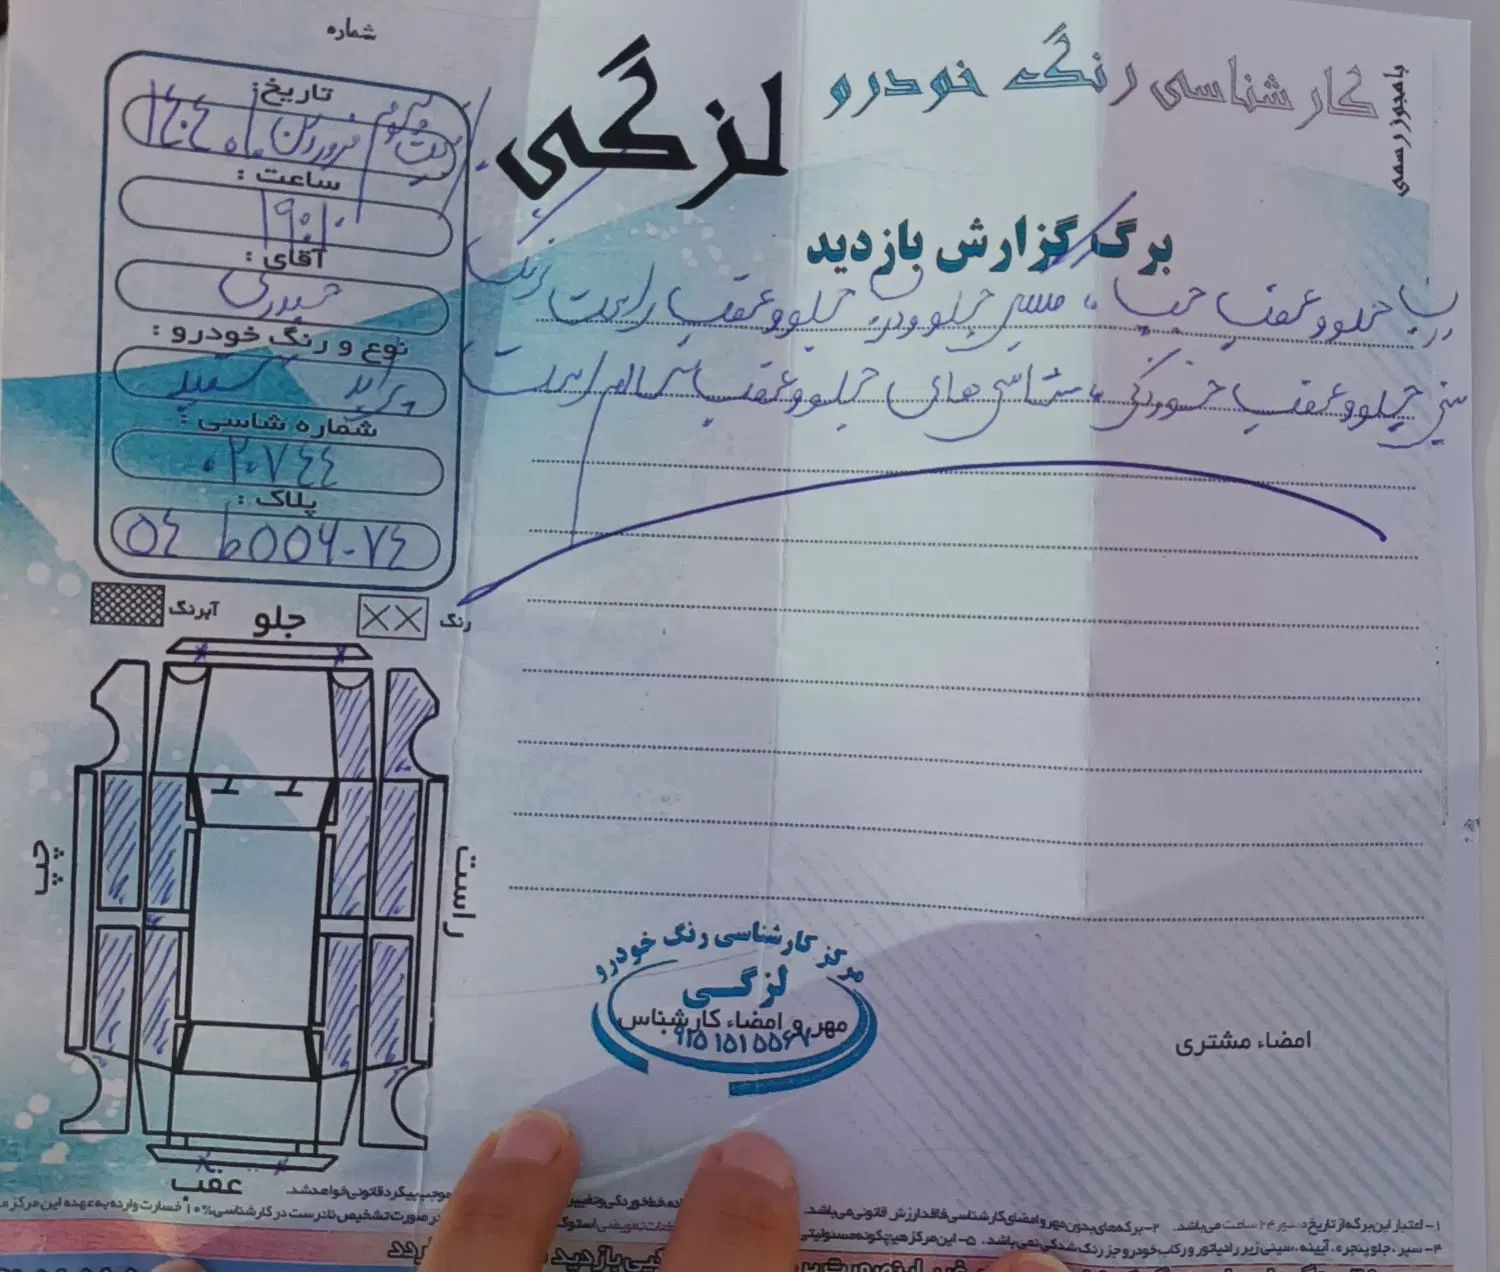 شماره
با مجوز رسمی
کارشناسی رنگ خودرو
لزگی
برگ گزارش بازدید
تاریخ:
بیست و یکم فروردین ماه ۱۴۰۴
ساعت :
۱۹:۱۰
آقای :
حیدری
نوع و رنگ خودرو :
پراید سفید
شماره شاسی :
۰۲۰۷۴۴
پلاک :
۵۴ ط ۵۵۶-۷۴
درب جلو و عقب چپ، گلگیر جلو و درب جلو و عقب راست رنگ
سینی جلو و عقب خوردگی، شاسی های جلو و عقب سالم است
رنگ
آبرنگ
جلو
چپ
راست
عقب
مرکز کارشناسی رنگ خودرو
لزگی
مهر و امضاء کارشناس
امضاء مشتری
۱- اعتبار این برگه از تاریخ صدور ۲۴ ساعت می‌باشد.
۲- برگه‌های بدون مهر و امضای کارشناسی فاقد ارزش قانونی می‌باشد.
موجب پیگرد قانونی خواهد شد.
در صورت تشخیص نادرست در کارشناسی ۱۰% خسارت وارده به عهده این مرکز
۴- سپر، جلو پنجره، آیینه، سینی زیر رادیاتور و رکاب خودرو جز رنگ شدگی نمی‌باشد.
۵- این مرکز هیچگونه مسئولیتی